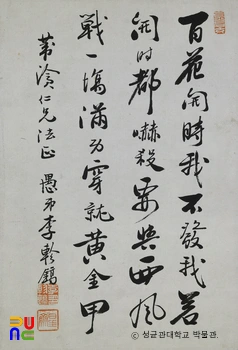 百花開時我不發我若
開時都嚇殺要與西風
戰一場滿身穿就黃金甲
葦滄仁兄法正 愚弟李軫鎬
ⓒ 성균관대학교 박물관.